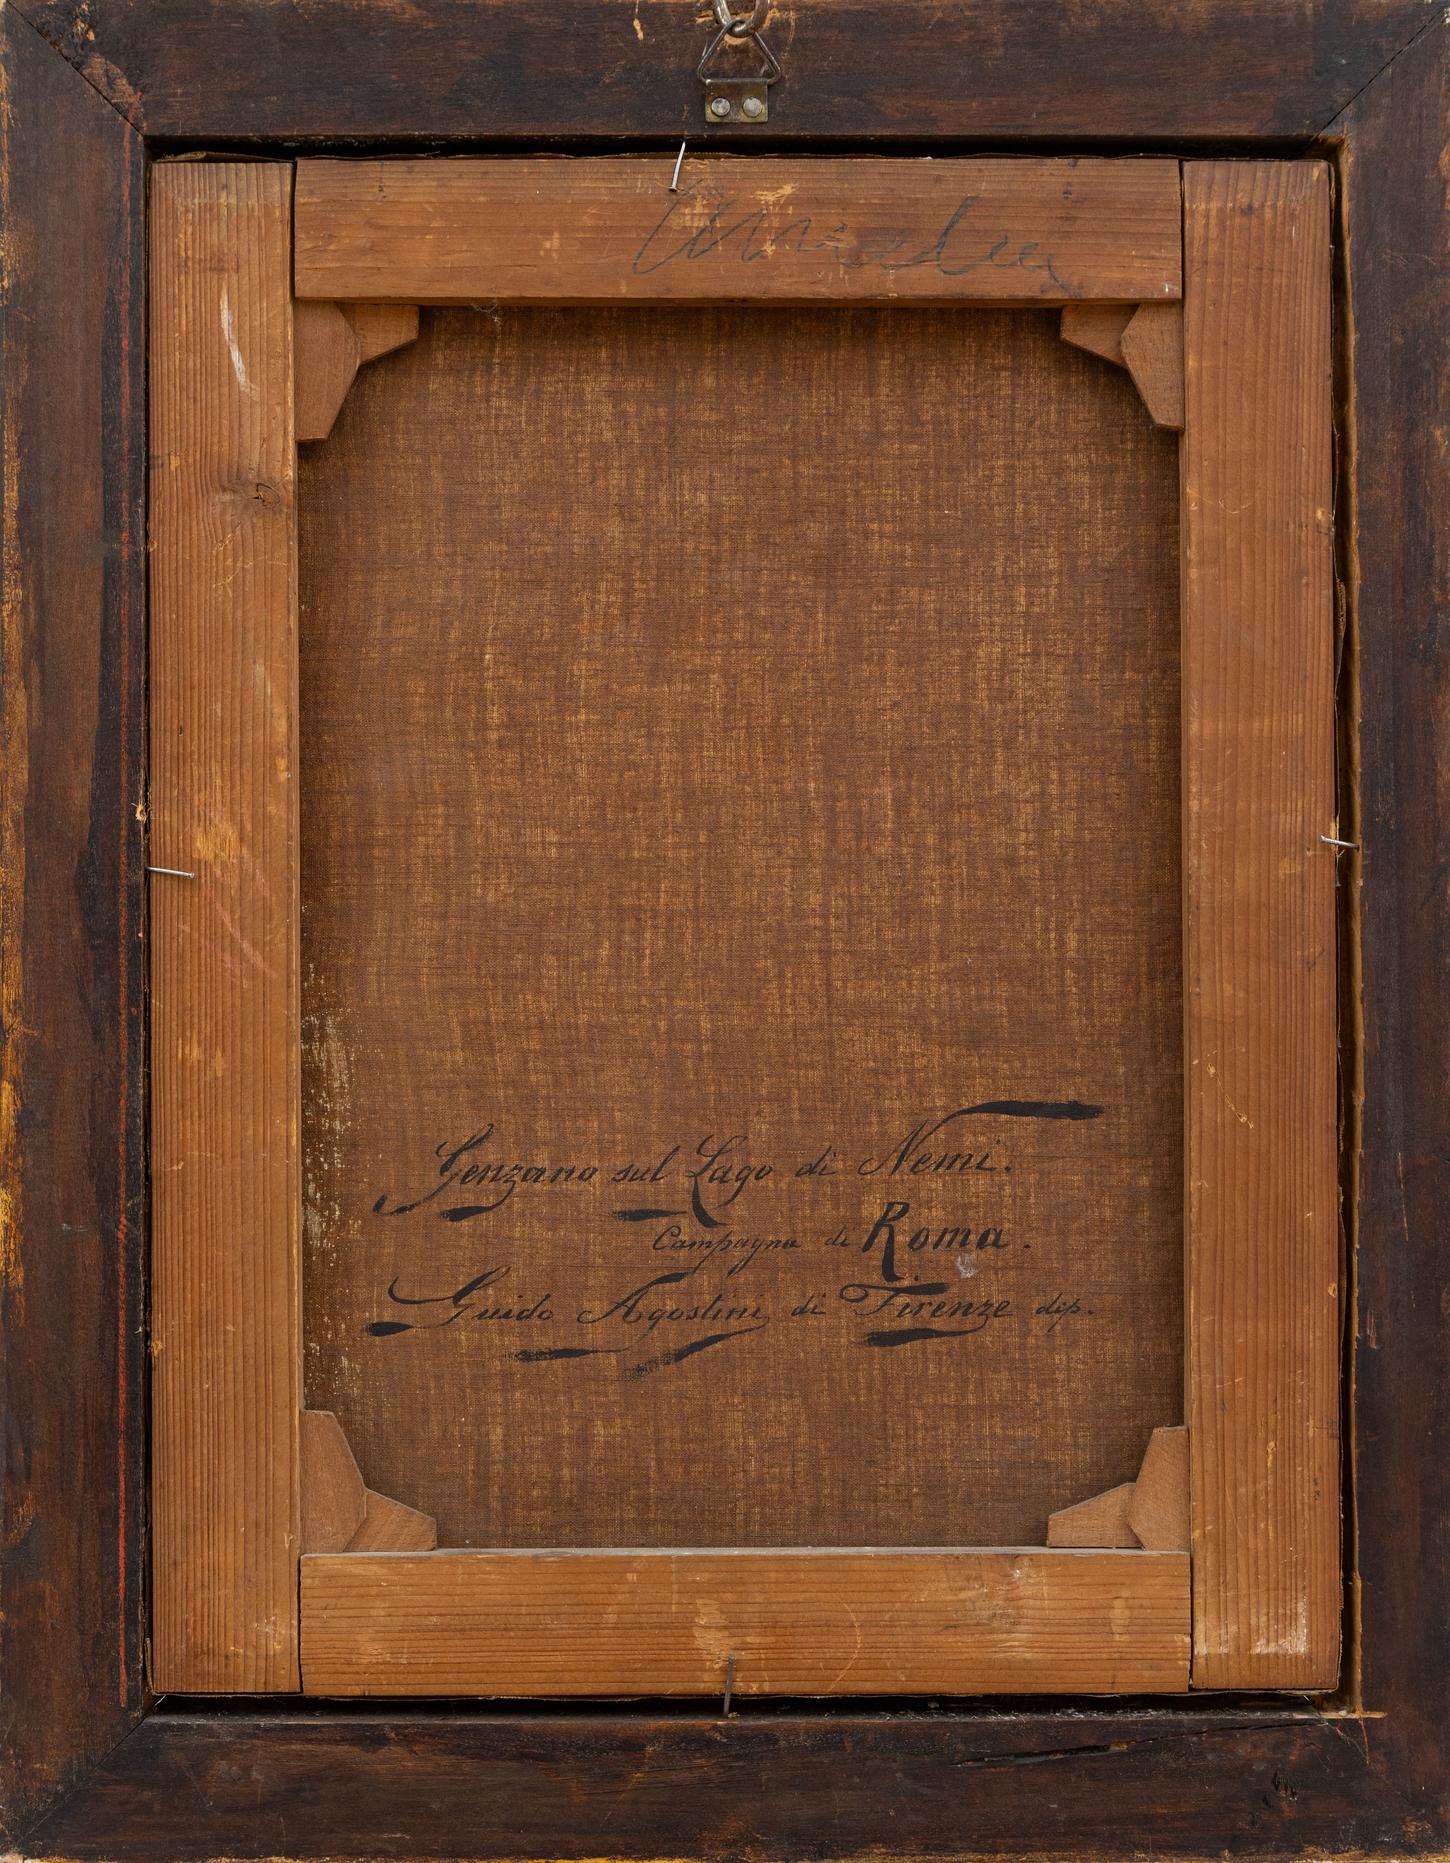 Genzano sul Lago di Nemi.
Campagna di Roma.
Guido Agostini di Firenze dip.